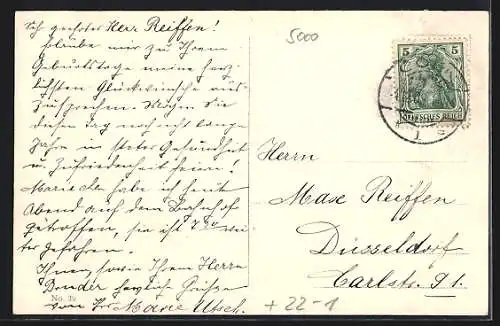 Sehr geehrter Herr Reiffen!
Erlaube mir zu Ihrem
Geburtstage meine herz
lichsten Glückwünsche aus
zusprechen. Mögen Sie
diesen Tag noch recht lange
Jahre in steter Gesundheit
u. Zufriedenheit feiern!
Marie habe ich heut
Abend auf dem Bahnhof
getroffen, sie ist 7 wei
ter gefahren.
Ihnen, sowie Ihrem Herrn
Bruder herzliche Grüße
von Marie Utsch.
No. 35
5000
5 5
DEUTSCHES REICH
Herrn
Max Reiffen
Düsseldorf
Carlstr. 91.
+ 22-1